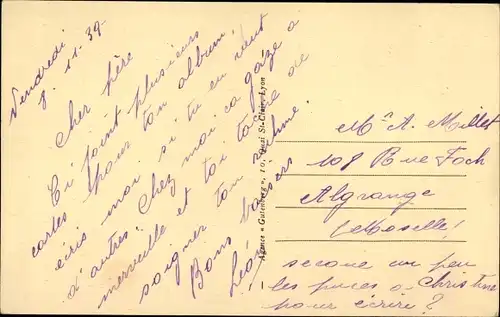 Vendredi
8. 11. 39.
Cher père
Ci joint plusieurs
cartes pour ton album,
écris moi si tu en veut
d'autres. Chez moi ca gaze a
merveille et toi tache de
soigner ton rhume.
Bons baisers
Léo
Agence « Gutenberg », 10, Quai St-Clair, Lyon
Mr A. Millet
108 Rue Foch
Algrange
(Moselle)
secoue un peu
les puces a Christine
pour écrire?